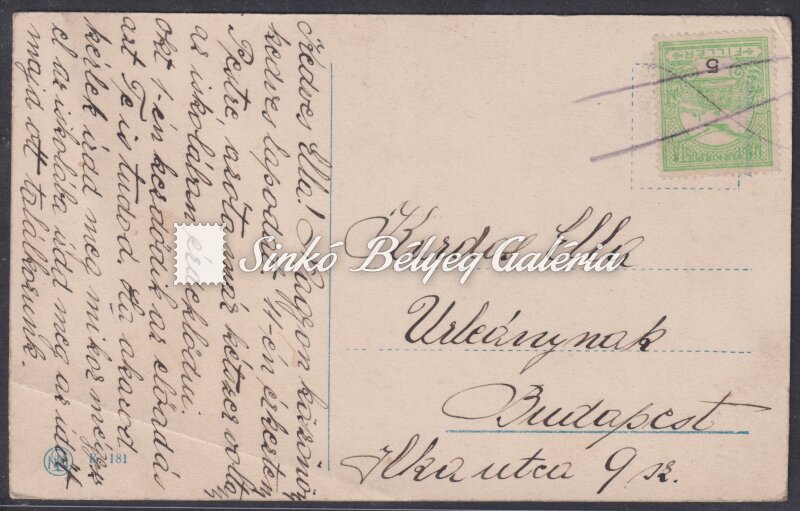 Kedves Ella! Nagyon köszönöm
kedves lapodat. 4-en érkeztem
Pestre azóta már kétszer voltam
az iskolában érdeklődni.
okt 1-én kezdődik az előadá-
azt Te is tudod. Ha akarod
kérlek írd meg mikor mégy
el az iskolába írd meg az időt
majd ott találkozunk.
5
FILLÉR
MAGYAR KIR. POSTA
Sinkó Bélyeg Galéria
Ella
Urleánynak
Budapest
Ilka utca 9 sz.
181